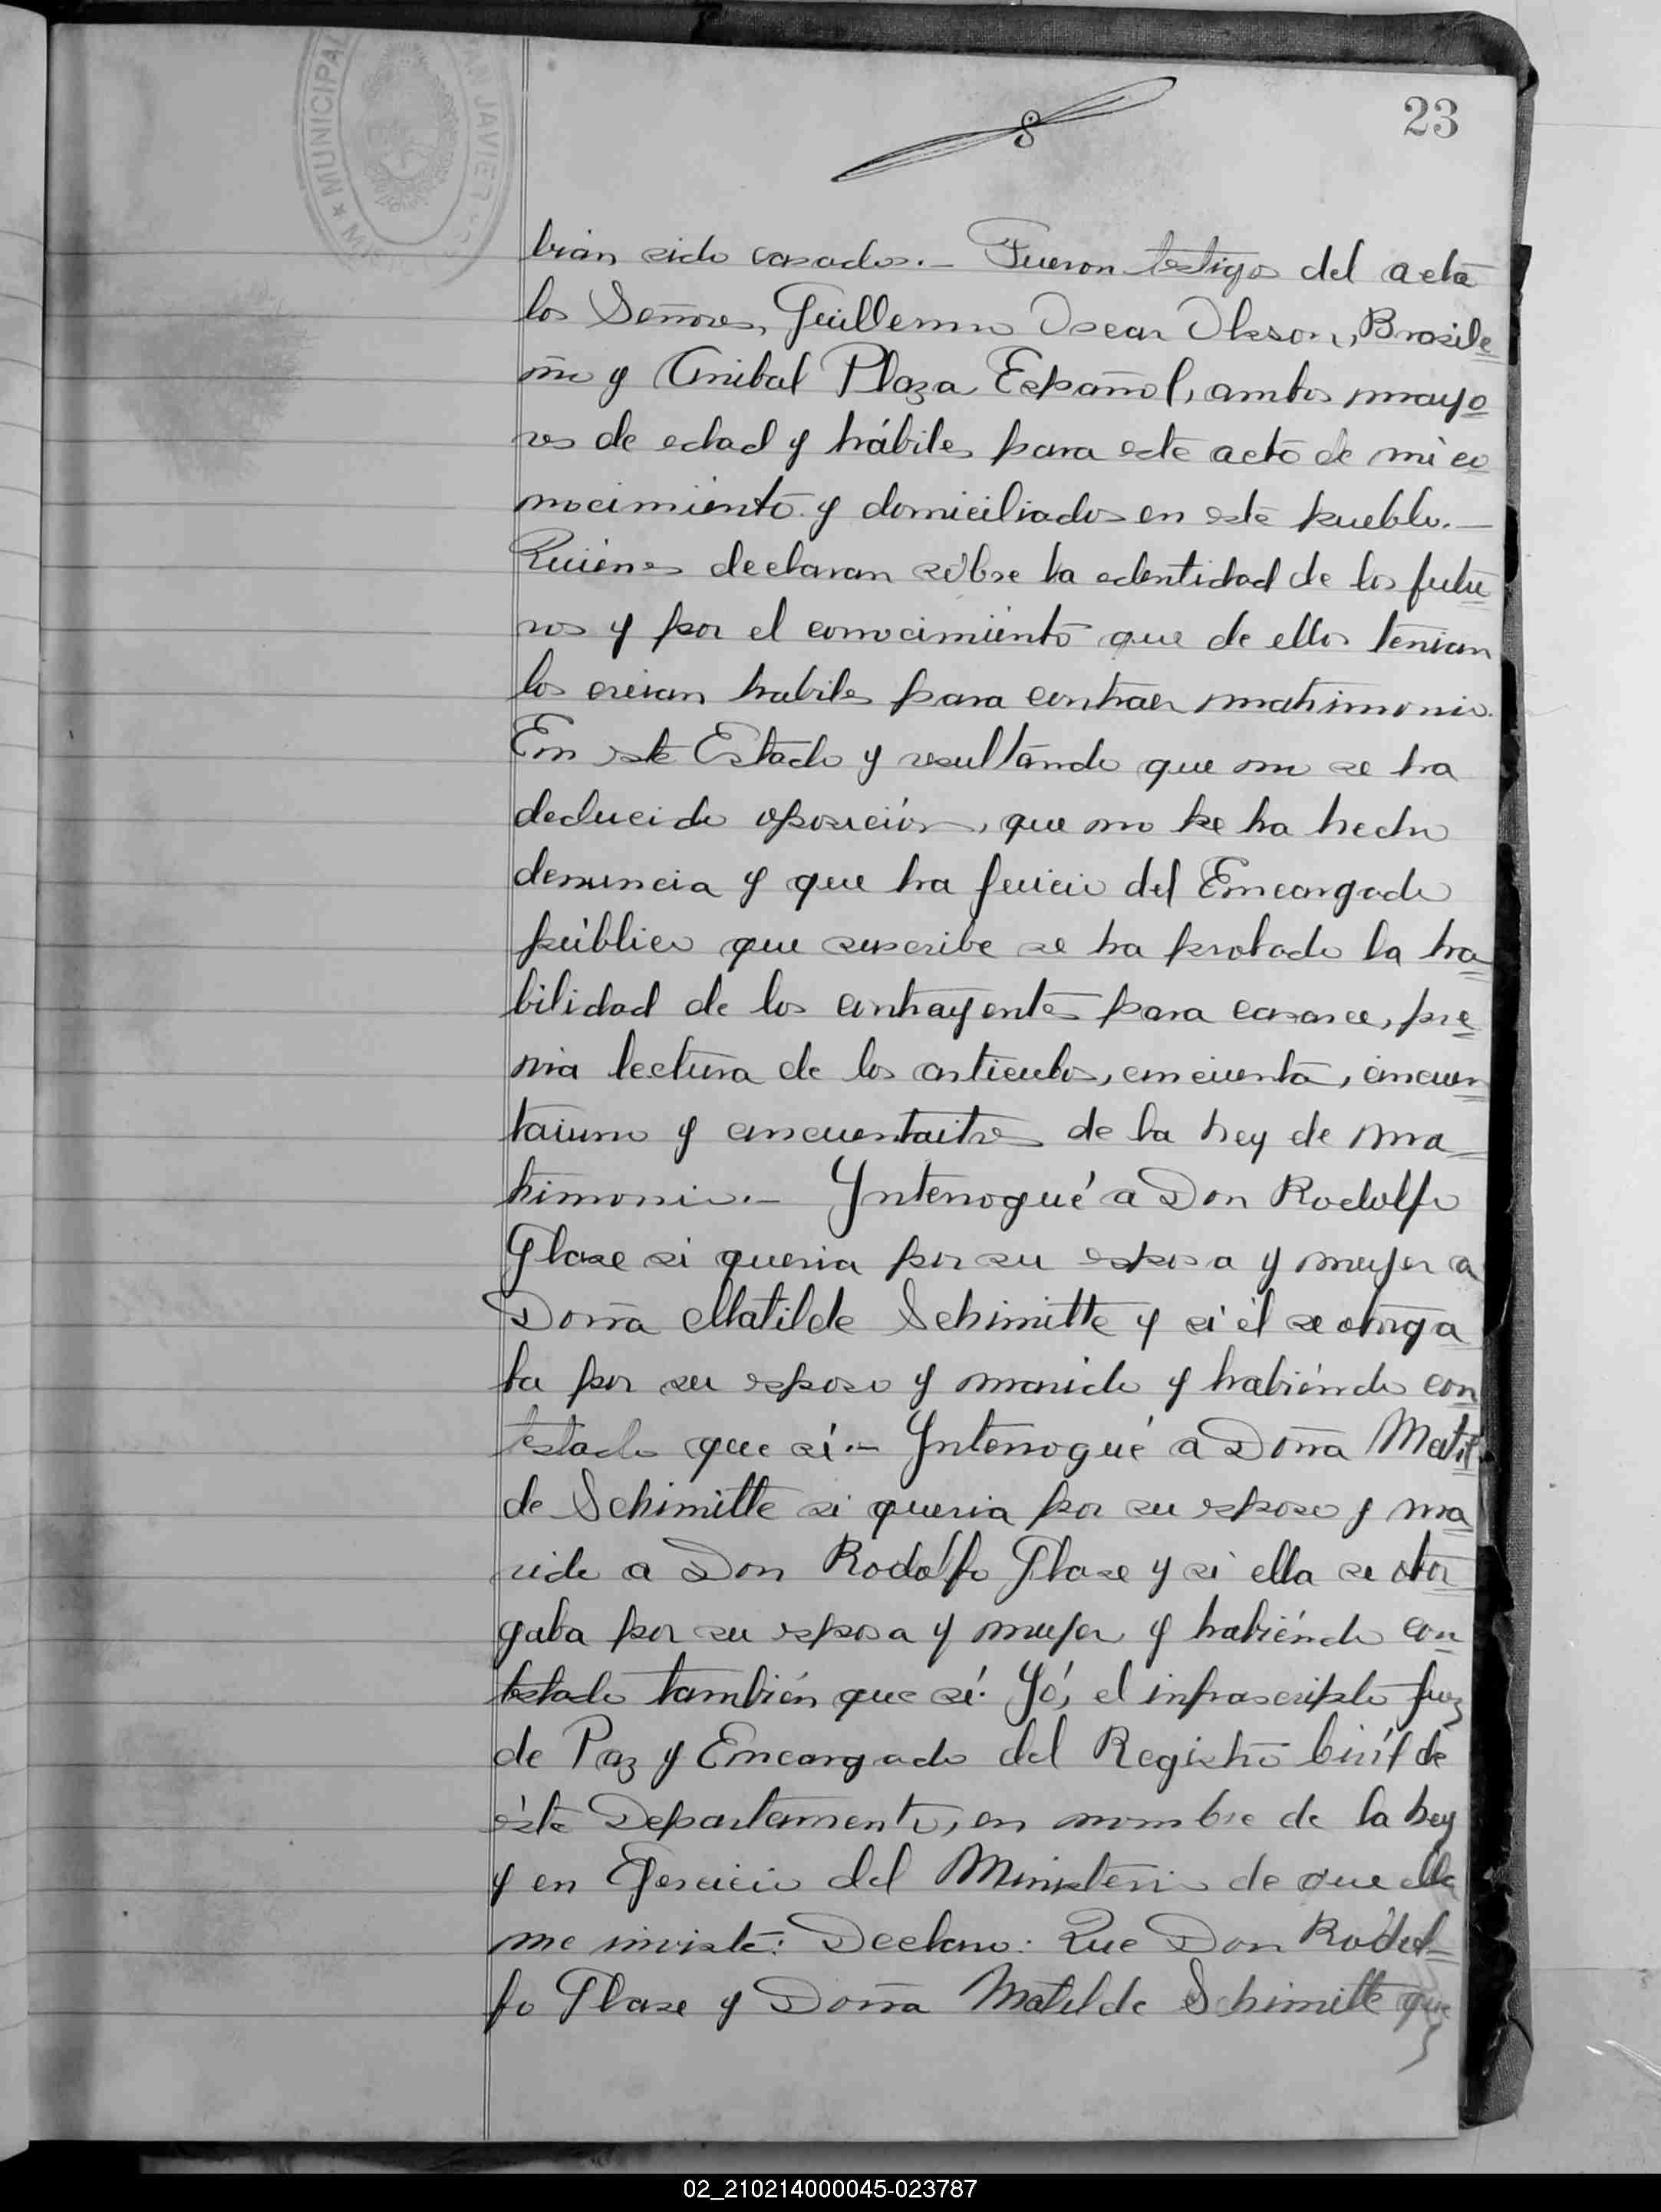 23
MUNICIPAL
AN JAVIER
brian sido casados.- Fueron testigos del acto
los Señores, Guillermo Oscar Olsson, Brasile
ño y Anibal Plaza Español, ambos mayo
res de edad y hábiles para este acto de mi co
nocimiento y domiciliados en este pueblo.-
Quienes declaran sobre la edentidad de los futu
ros y por el conocimiento que de ellos tenian
los creian habiles para contraer matrimonio.
En este Estado y resultando que no se ha
deducido oposición, que no se ha hecho
denuncia y que ha juicio del Encargado
público que suscribe se ha probado la ha
bilidad de los contrayentes para casarce, pre
via lectura de los articulos, cincuenta, cincuen
taiuno y cincuentaitres de la Ley de Ma
trimonio.- Ynterrogué a Don Rodolfo
Glase si queria por su esposa y mujer a
Doña Matilde Schimitte y si él se otorga
ba por su esposo y marido y habiéndo con
testado que sí.- Ynterrogué a Doña Matil
de Schimitte si queria por su esposo y ma
rido a Don Rodolfo Glase y si ella se otor
gaba por su esposa y mujer y habiéndo con
testado también que sí. Yó, el infrascripto Juez
de Paz y Encargado del Registro Civil de
éste Departamento, en nombre de la Ley
y en Ejercicio del Ministerio de que ella
me inviste: Declaro: Que Don Rodol-
fo Glase y Doña Matilde Schimitte que
02_210214000045-023787